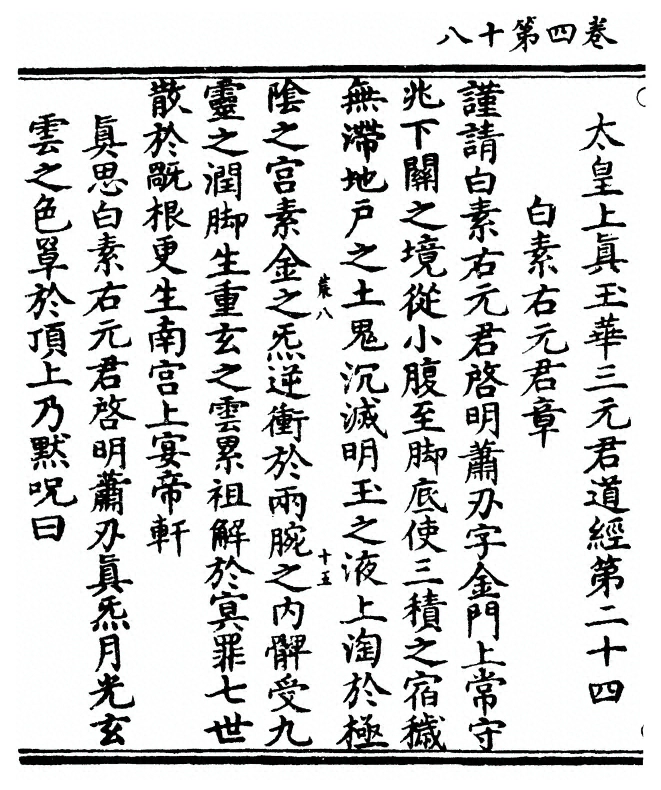 卷四第十八
太皇上眞玉華三元君道經第二十四
白素右元君章
謹請白素右元君啓明蕭刅字金門上常守
兆下關之境從小腹至脚底使三積之宿穢
無滯地戶之土鬼沉滅明玉之液上淘於極
裳八 十五
陰之宮素金之炁逆衝於兩腕之內髀受九
靈之潤脚生重玄之雲累祖解於冥罪七世
散於根更生南宮上宴帝軒
眞思白素右元君啓明蕭刅眞炁月光玄
雲之色罩於頂上乃默呪曰